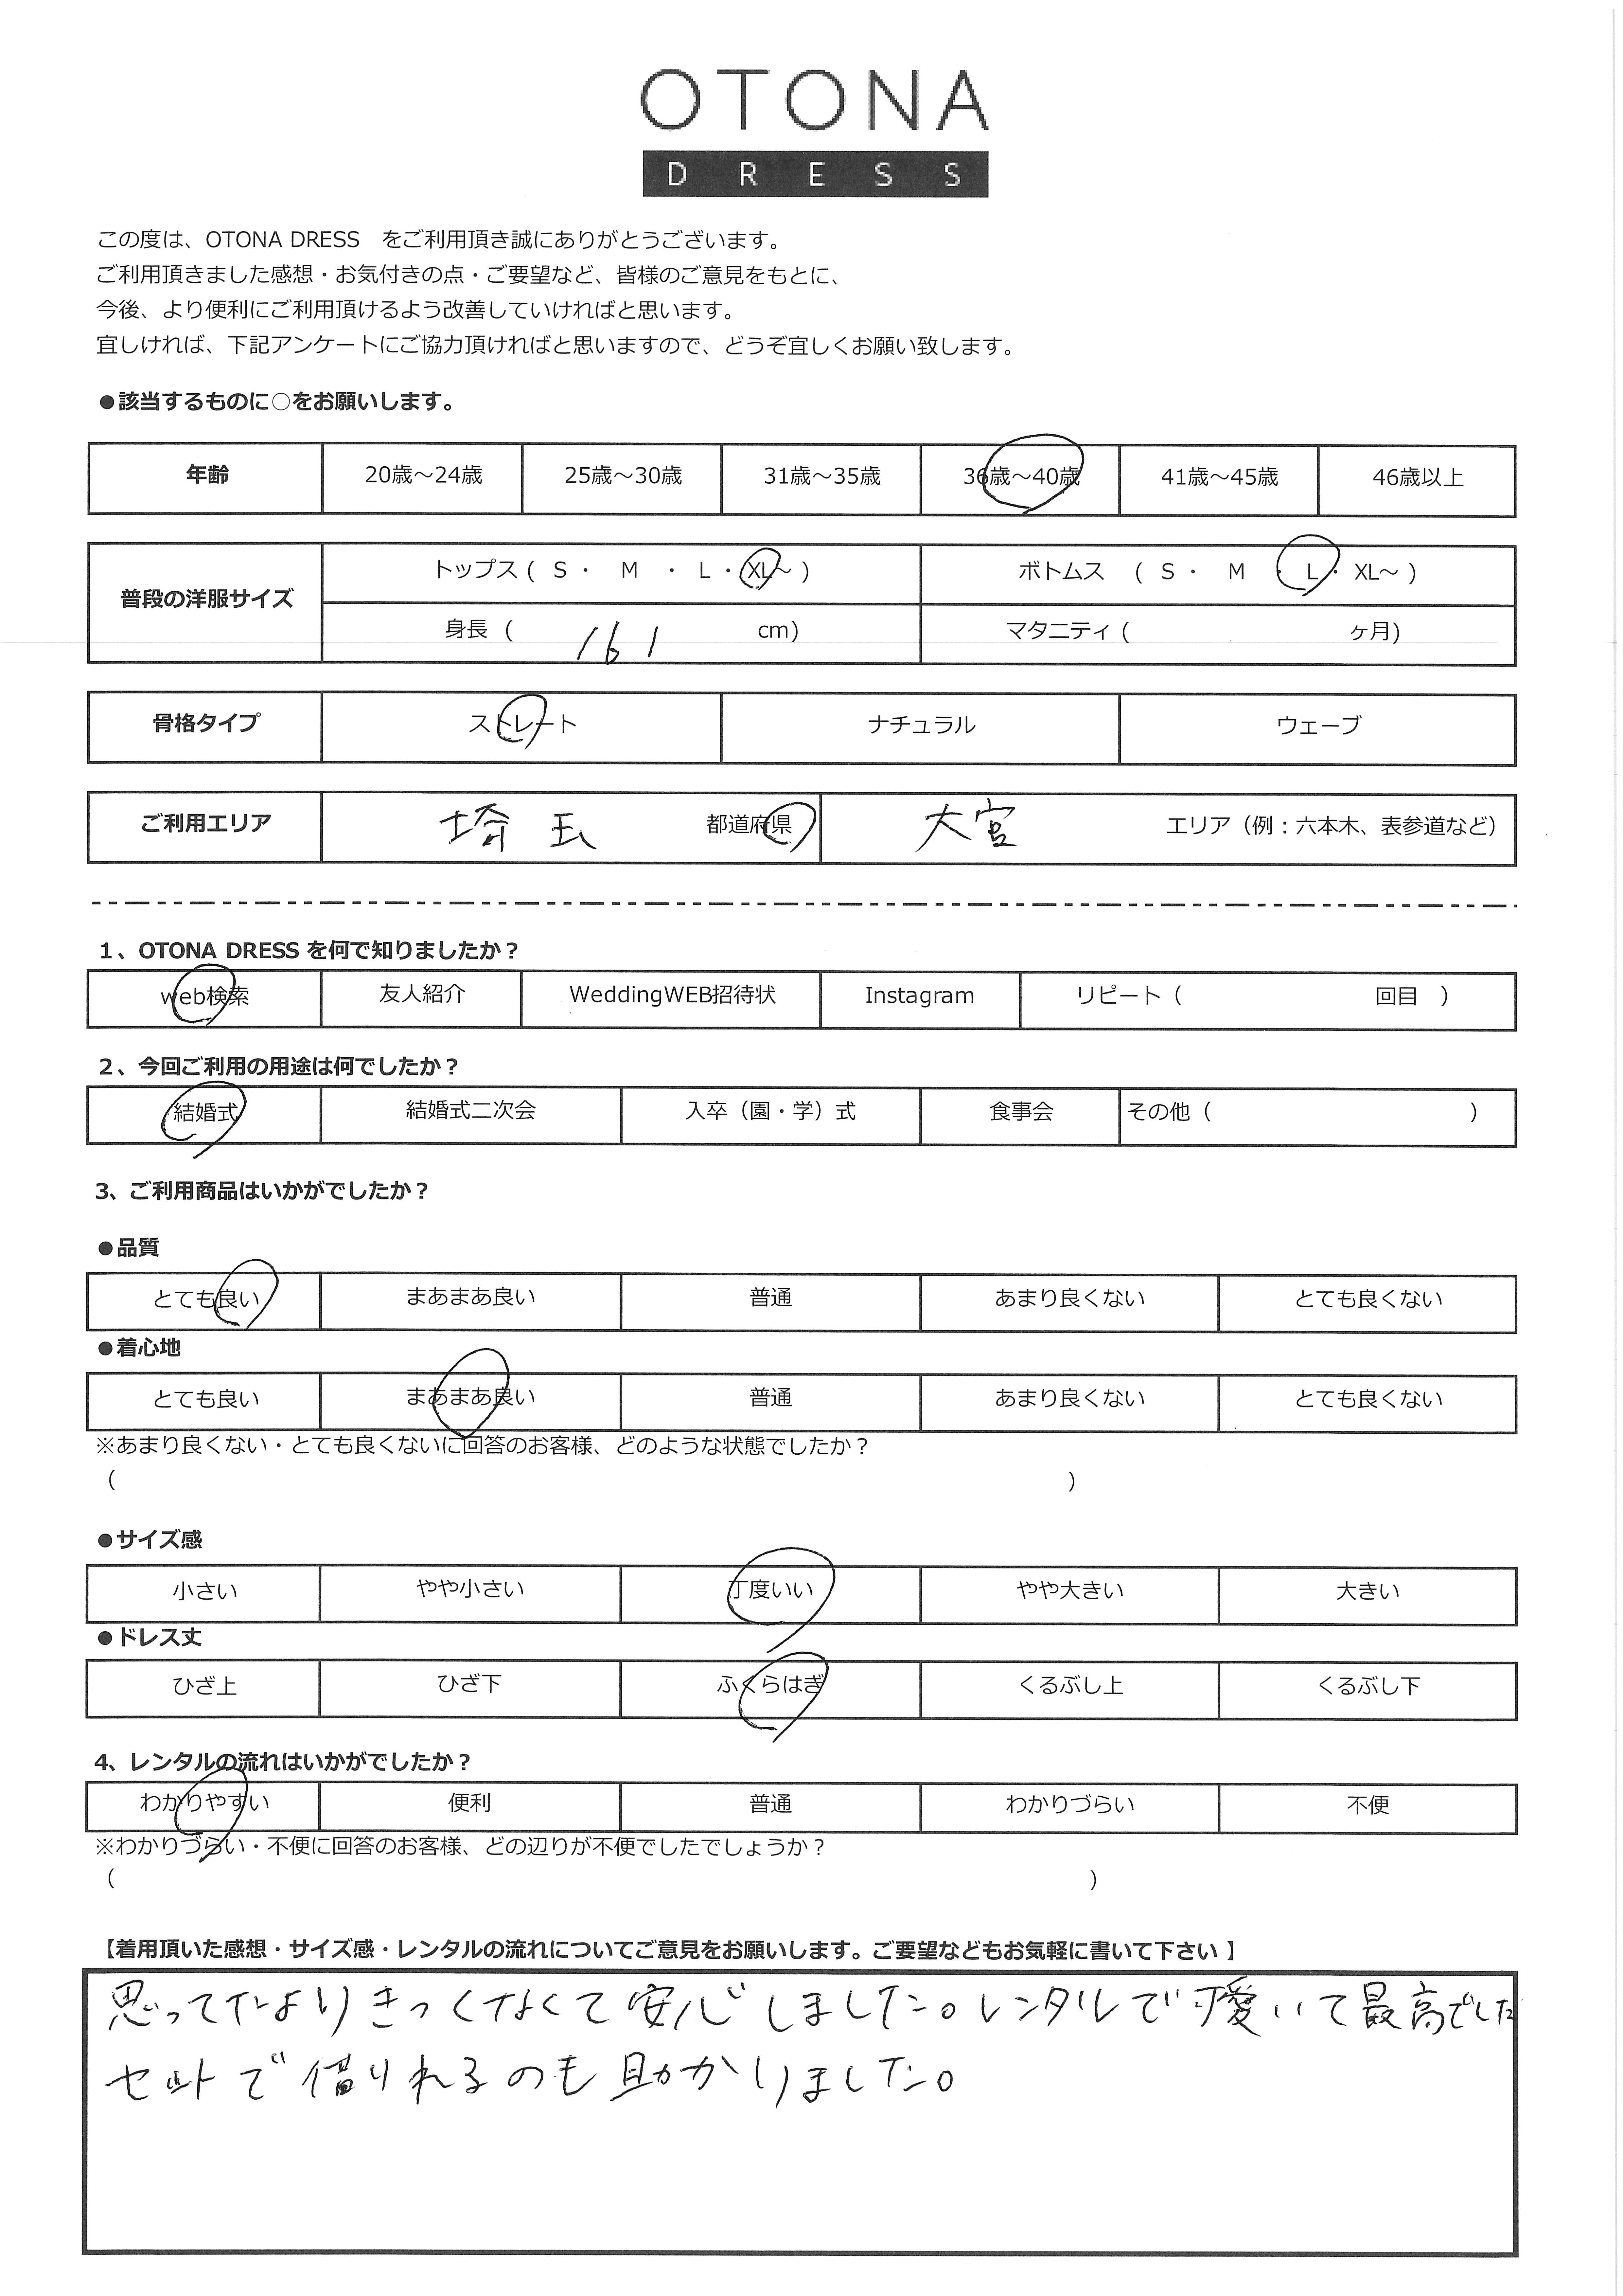 OTONA
DRESS
この度は、OTONA DRESS　をご利用頂き誠にありがとうございます。
ご利用頂きました感想・お気付きの点・ご要望など、皆様のご意見をもとに、
今後、より便利にご利用頂けるよう改善していければと思います。
宜しければ、下記アンケートにご協力頂ければと思いますので、どうぞ宜しくお願い致します。
●該当するものに○をお願いします。
年齢 20歳～24歳 25歳～30歳 31歳～35歳 36歳～40歳 41歳～45歳 46歳以上
普段の洋服サイズ トップス ( S ・ M ・ L ・ XL～ ) ボトムス ( S ・ M ・ L ・ XL～ )
身長 ( 161 cm) マタニティ ( ヶ月)
骨格タイプ ストレート ナチュラル ウェーブ
ご利用エリア 埼玉 都道府県 大宮 エリア（例：六本木、表参道など）
1、OTONA DRESS を何で知りましたか？
web検索 友人紹介 WeddingWEB招待状 Instagram リピート（ 回目 ）
2、今回ご利用の用途は何でしたか？
結婚式 結婚式二次会 入卒（園・学）式 食事会 その他（ ）
3、ご利用商品はいかがでしたか？
●品質
とても良い まあまあ良い 普通 あまり良くない とても良くない
●着心地
とても良い まあまあ良い 普通 あまり良くない とても良くない
※あまり良くない・とても良くないに回答のお客様、どのような状態でしたか？
（ ）
●サイズ感
小さい やや小さい 丁度いい やや大きい 大きい
●ドレス丈
ひざ上 ひざ下 ふくらはぎ くるぶし上 くるぶし下
4、レンタルの流れはいかがでしたか？
わかりやすい 便利 普通 わかりづらい 不便
※わかりづらい・不便に回答のお客様、どの辺りが不便でしたでしょうか？
（ ）
【着用頂いた感想・サイズ感・レンタルの流れについてご意見をお願いします。ご要望などもお気軽に書いて下さい 】
思ってたよりきつくなくて安心しました。レンタルで可愛いくて最高でした
セットで借りれるのも助かりました。